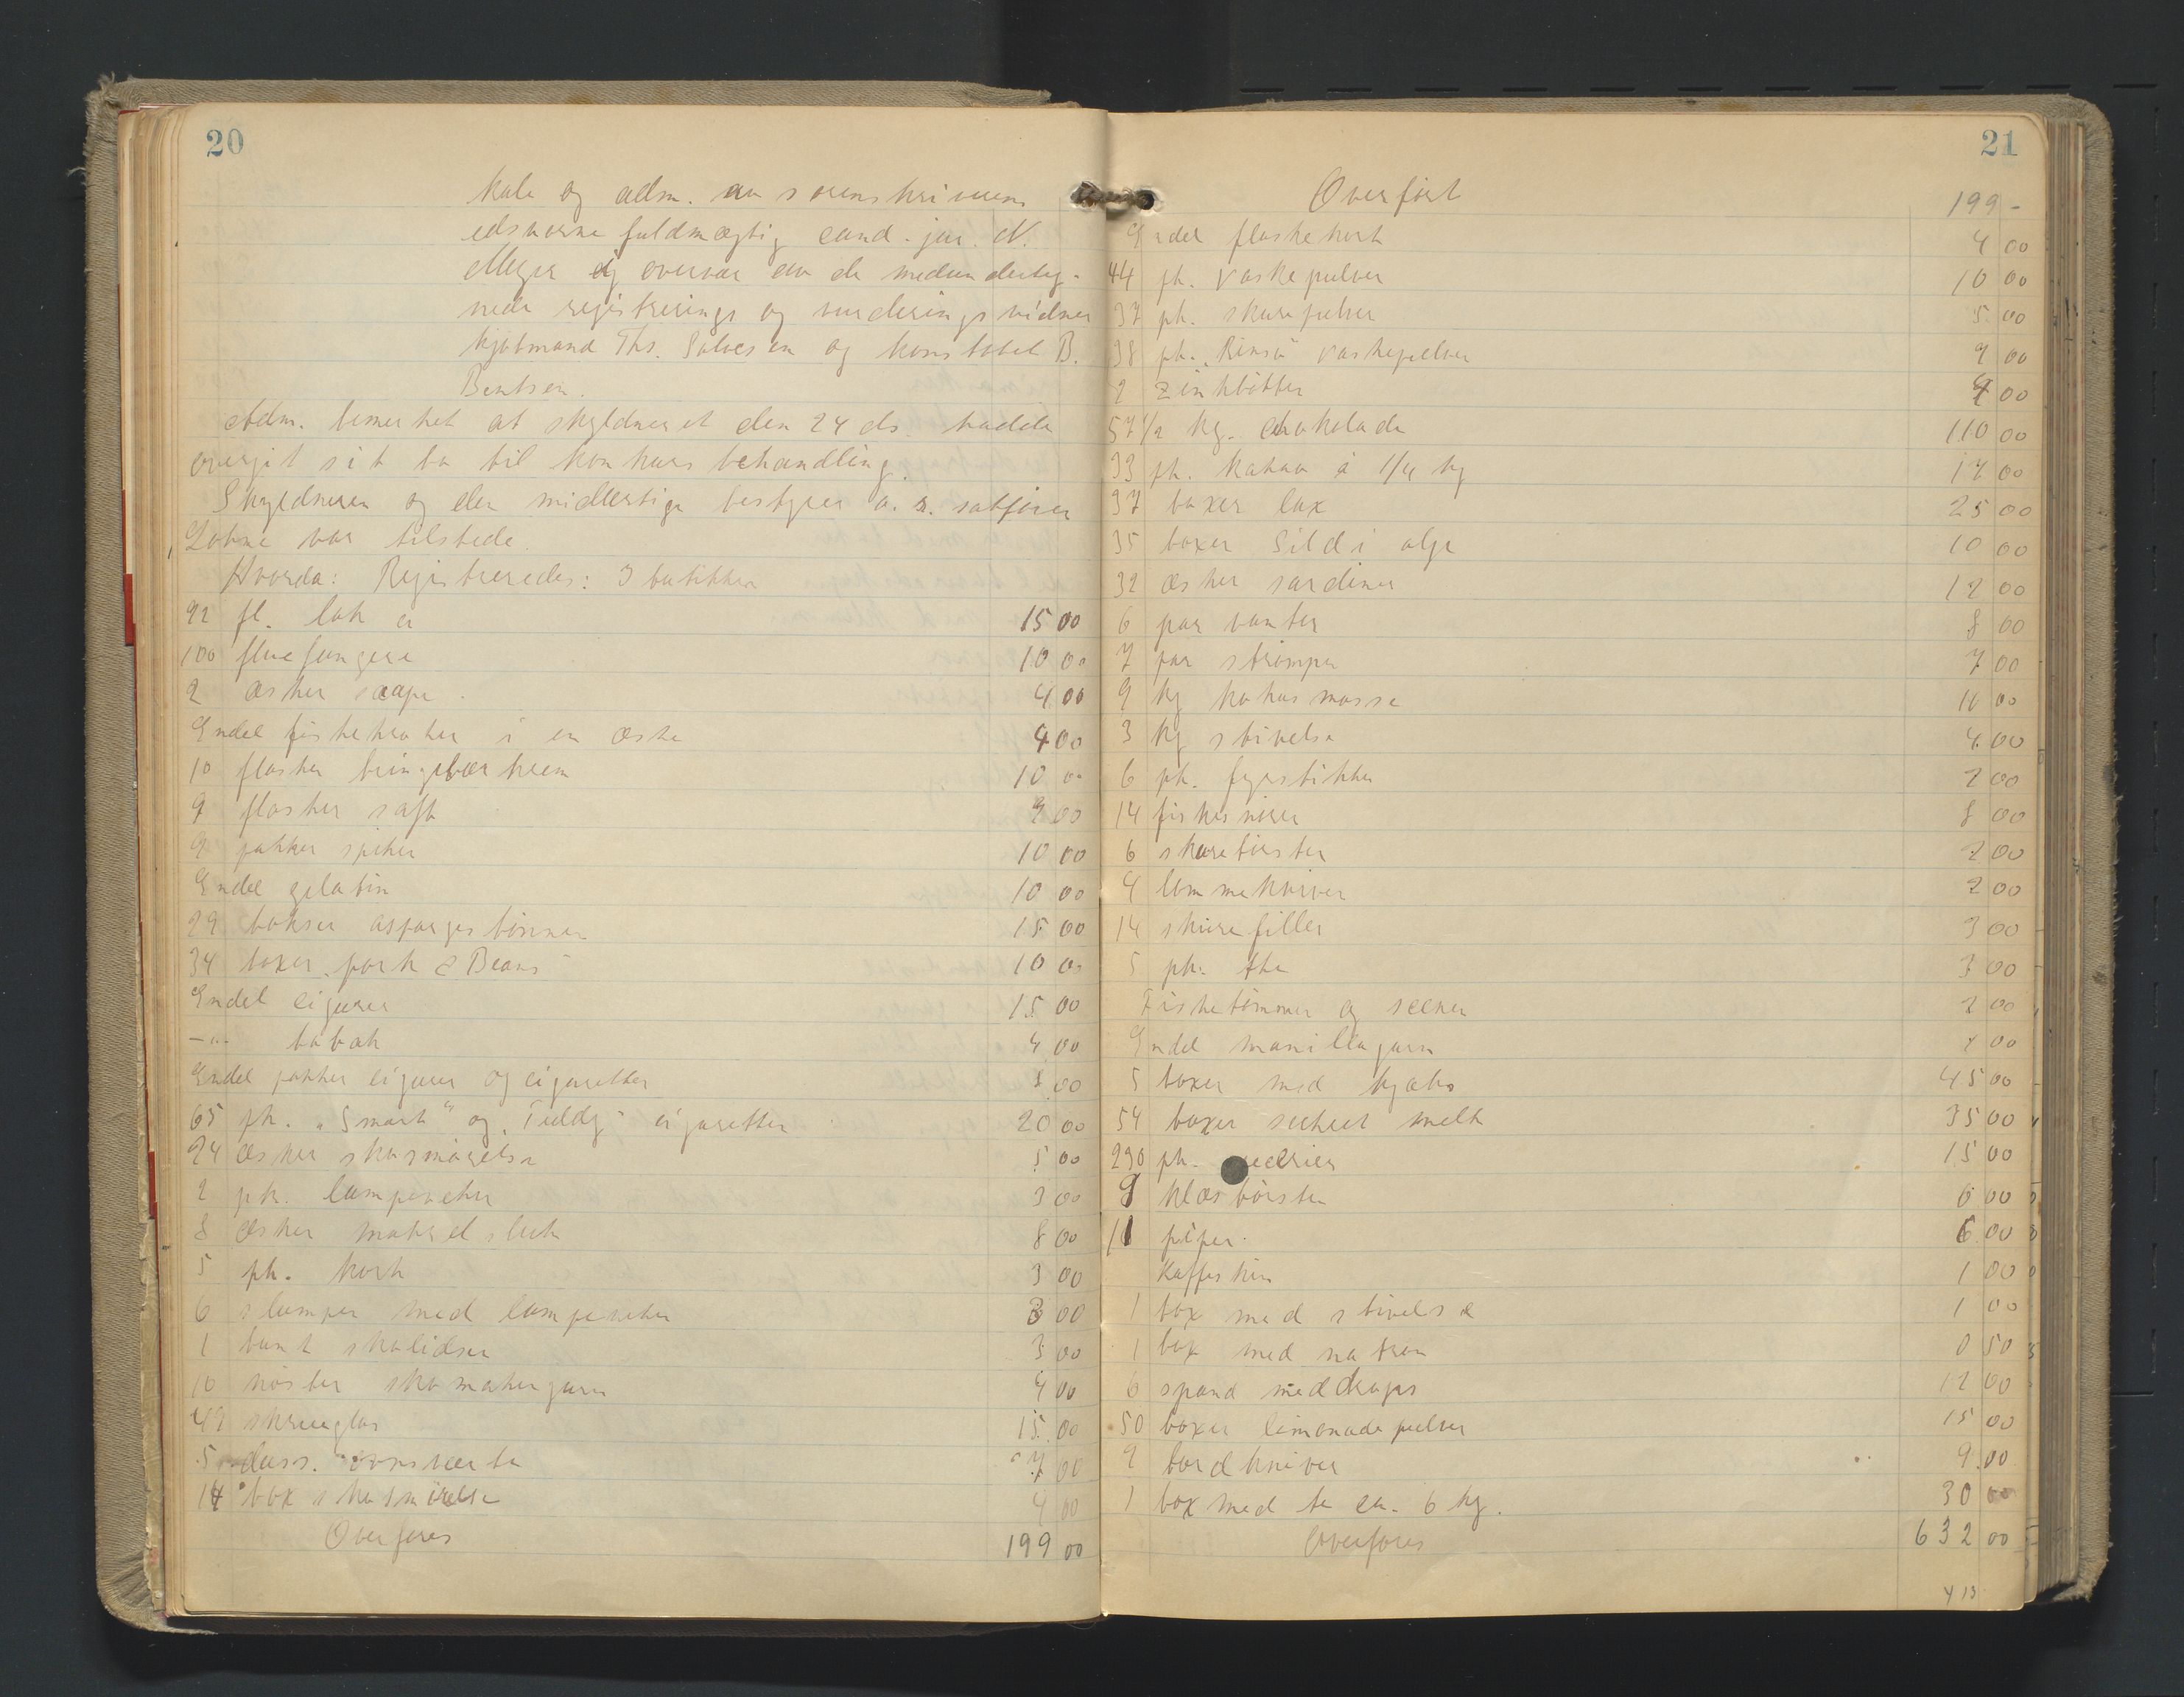 20
kale og adm. av sorenskriverens
edsvorne fuldmægtig cand. jur. N.
Meyer og overvær av de medunderteg-
nede registrerings og vurderingsvidner
kjøbmand Ths. Salvesen og konstabel B.
Bentsen.
Adm. bemerket at skyldneren den 24 ds. hadde
overgit sit bo til konkursbehandling.
Skyldneren og den midlertige bestyrer o. r. sakfører
var tilstede.
Hvorda: Registreredes: I butikken
92 fl. lak a 15 00
100 fluefangere 10 00
2 æsker saape 4 00
Endel fiskekroker i en æske 4 00
10 flasker bringebærkrem 10 00
9 flasker saft 9 00
9 pakker spiker 10 00
Endel gelatin 10 00
29 bokser aspargesbønner 15 00
34 boxer pork & Beans 10 00
Endel cigarer 15 00
-"- tobak 4 00
Endel pakker cigarer og cigaretter 00
65 pk. "Smart" og "Teddy" cigaretter 20 00
24 æsker skosmørelse 5 00
2 pk. lampeveker 3 00
8 æsker makrelsluk 8 00
5 pk. kork 3 00
6 slumper med lampeveker 3 00
1 bunt skolidser 3 00
10 nøster skomakergarn 4 00
49 skrueglas 15 00
5 duss. 7 00
14 box skosmørelse 4 00
Overføres 199 00
21
Overført 199 -
Endel flaskekork 4 00
44 pk. vaskepulver 10 00
37 pk. skurepulver 5 00
38 pk. "Rinso" vaskepulver 9 00
2 zinkbøtter 4 00
57 1/2 kg. chokolade 110 00
33 pk. kakao á 1/4 kg 17 00
37 boxer lax 25 00
35 boxer Sild i olje 10 00
32 æsker sardiner 12 00
6 par vanter 8 00
7 par strømper 7 00
9 kg kokosmasse 10 00
3 kg stivelse 4 00
6 pk. fyrstikker 2 00
14 fiskesnører 8 00
6 skurebørster 2 00
4 lommekniver 2 00
14 skurefiller 3 00
5 pk. the 3 00
Fisketømmer og seener 2 00
Endel manillagarn 00
5 boxer med kjæks 45 00
54 boxer sukret melk 35 00
290 pk. 15 00
9 klæsbørster 6 00
11 piper 6 00
Kaffeskin 1 00
1 box med stivelse 1 00
1 box med natron 0 50
6 spand med drops 12 00
50 boxer limonadepulver 15 00
9 bordkniver 9.00
1 box med te ca. 6 kg. 30 00
Overføres 632 00
413